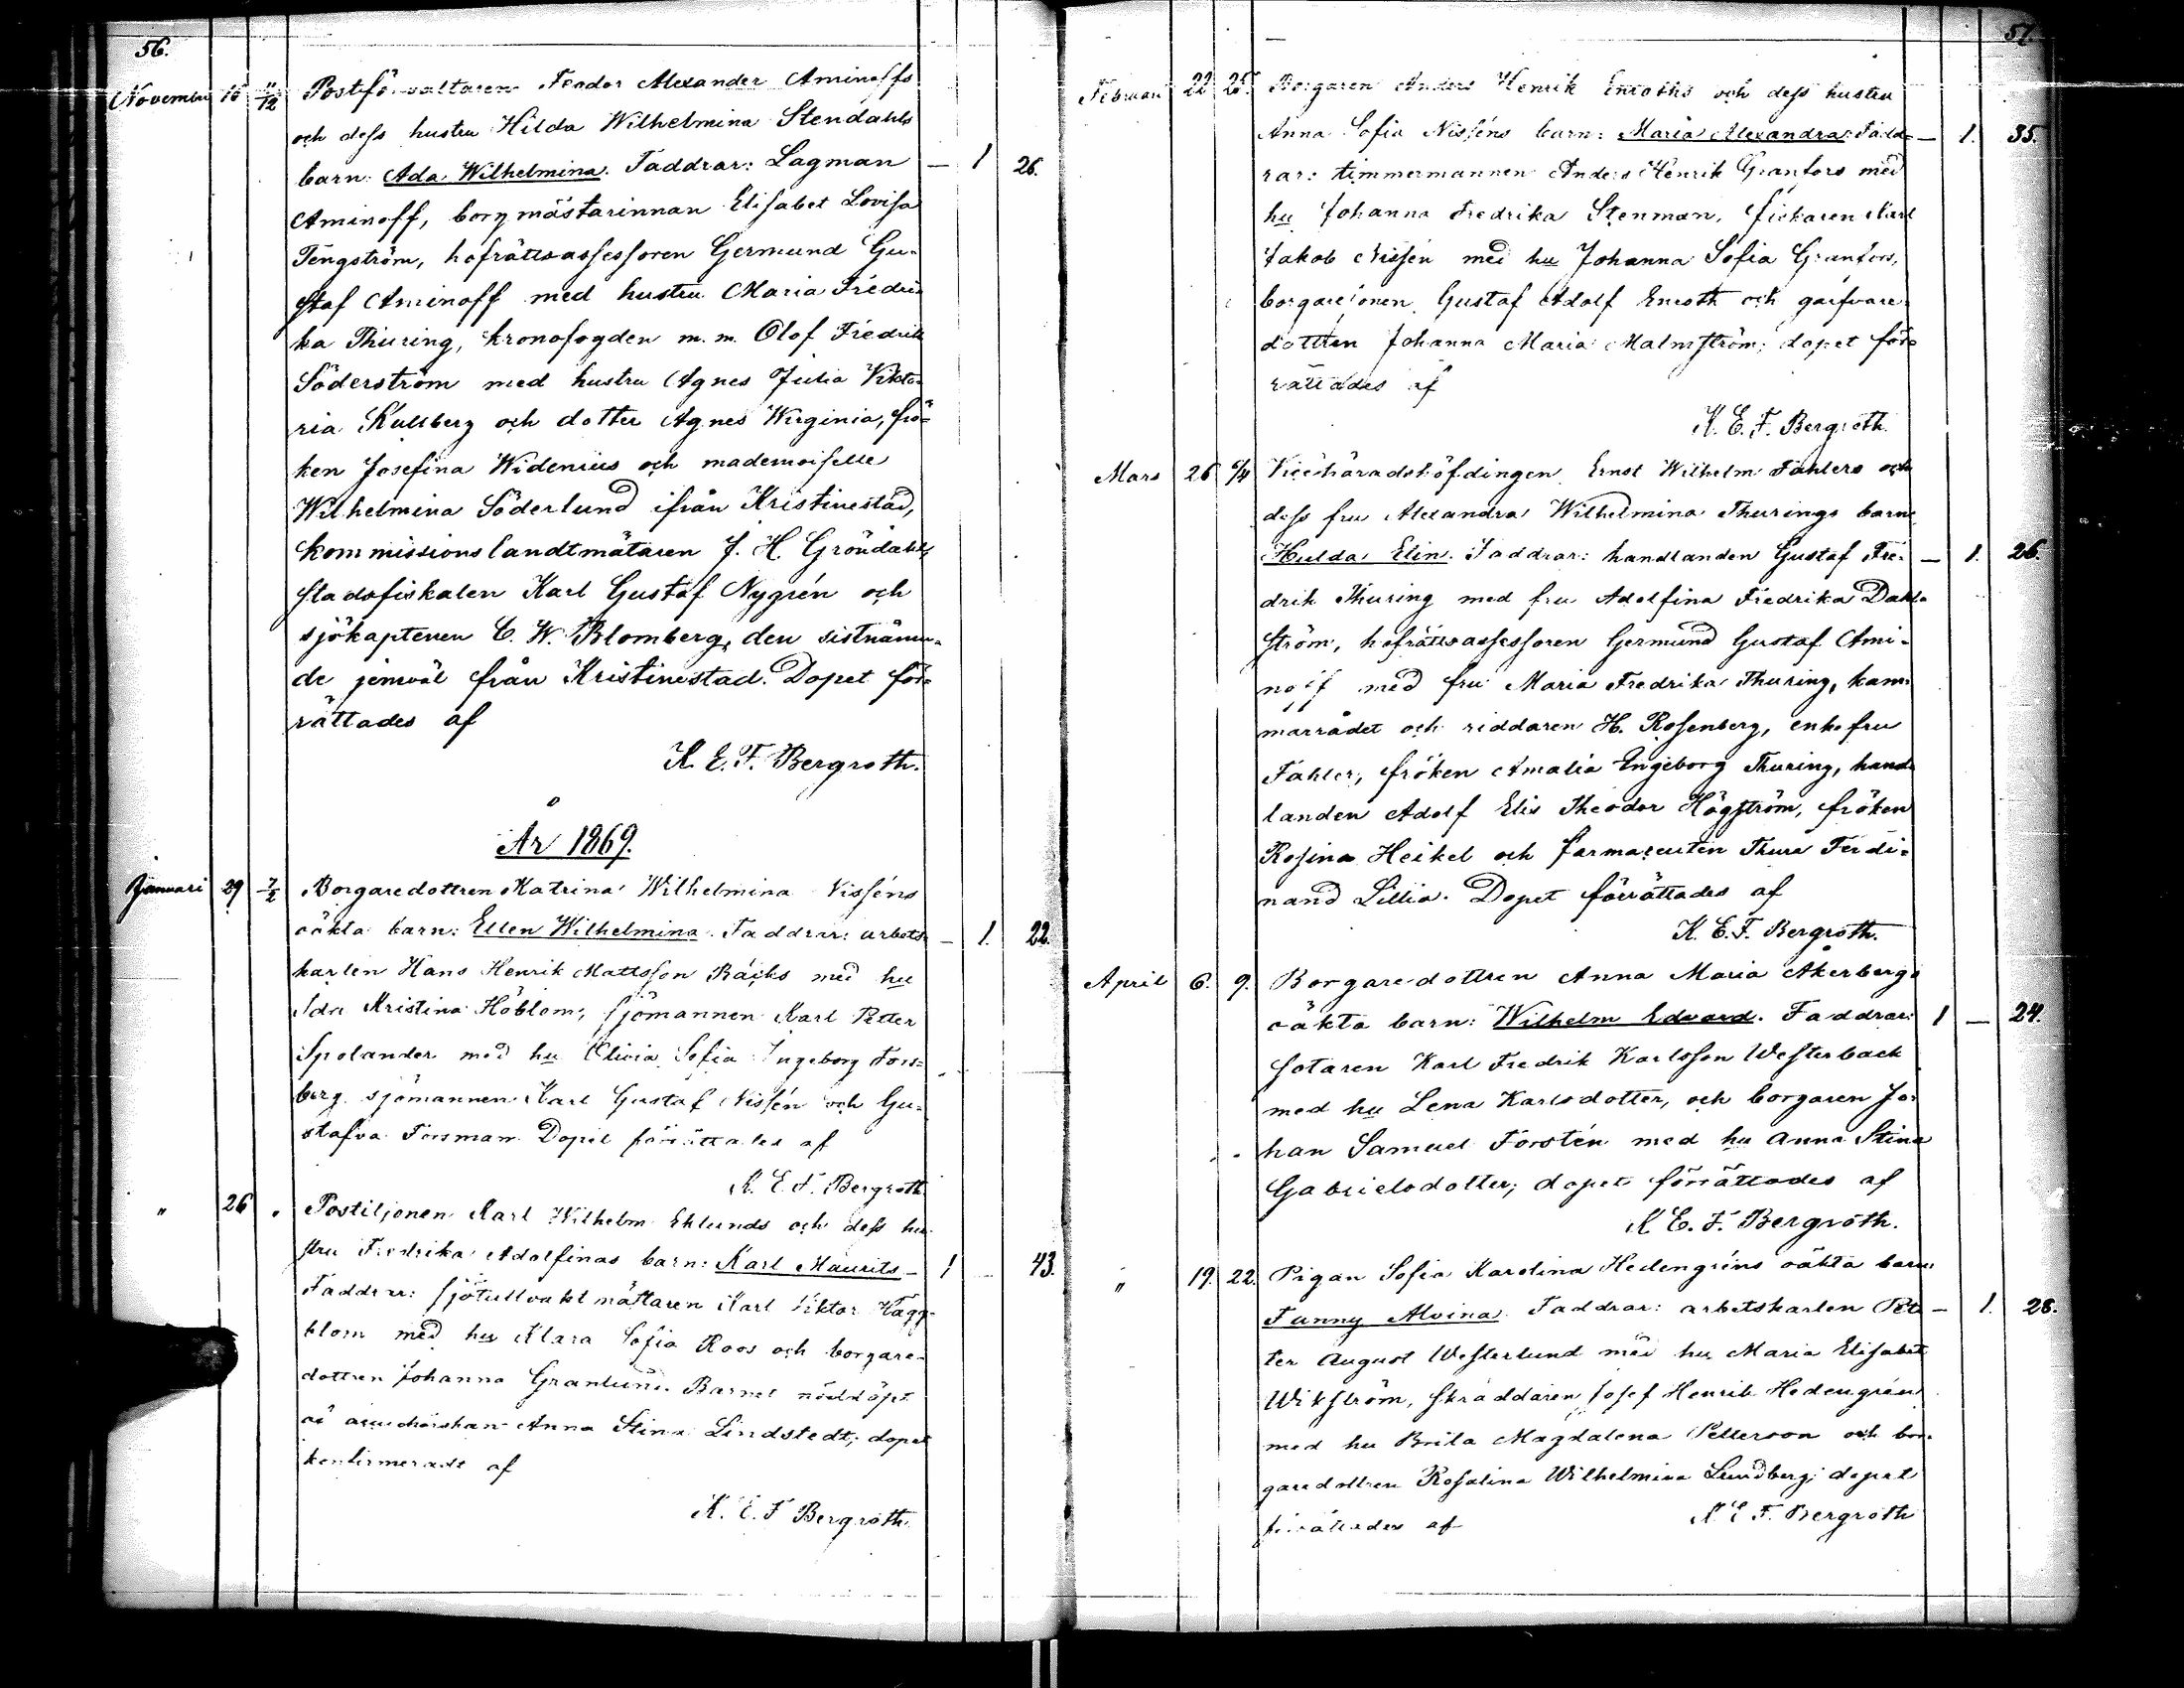 56.
Novembr 16 11/12 Postförvaltaren Feodor Alexander Aminoffs
och dess hustru Hilda Wilhelmina Stendahls
barn: Ada Wilhelmina. Faddrar: Lagman — 1 26.
Aminoff, borgmästarinnan Elisabet Lovisa
Tengström, hofrättsassessoren Germund Gu-
staf Aminoff med hustru Maria Fredri-
ka Thuring, kronofogden m. m. Olof Fredrik
Söderström med hustru Agnes Julia Vikto-
ria Kullberg och dotter Agnes Wirginia, frö-
ken Josefina Widenius och mademoiselle
Wilhelmina Söderlund ifrån Kristinestad,
kommissionslandtmätaren J. H. Gröndahl,
stadsfiskalen Karl Gustaf Nygrén och
sjökaptenen C. W. Blomberg, den sistnämn-
de jemväl från Kristinestad. Dopet för-
rättades af
K. E. F. Bergroth.
År 1869.
Januari 29 7/2 Borgaredottren Katrina Wilhelmina Nisséns
oäkta barn: Ellen Wilhelmina. Faddrar: arbets- — 1. 22.
karlen Hans Henrik Mattsson Bäcks med hu
Ida Kristina Höblom, sjömannen Karl Petter
Spolander med hu Olivia Sofia Ingeborg Fors-
berg, sjömannen Karl Gustaf Nissén och Gu-
stafva Forsman. Dopet förrättades af
K. E. F. Bergroth.
" 26 " Postiljonen Karl Wilhelm Eklunds och dess hu-
stru Fredrika Adolfinas barn: Karl Maurits — 1 43.
Faddrar: sjötullvaktmästaren Karl Viktor Hägg-
blom med hu Klara Sofia Roos och borgare-
dottren Johanna Granlund. Barnet nöddöpt
af Anna Stina Lindstedt; dopet
konfirmeradt af
K. E. F. Bergroth.
57.
Februari 22 25. Borgaren Anders Henrik Enroths och dess hustru
Anna Sofia Nisséns barn: Maria Alexandra. Fadd- — 1. 35.
rar: timmermannen Anders Henrik Granfors med
hu Johanna Fredrika Stenman, fiskaren Karl
Jakob Nissén med hu Johanna Sofia Granfors,
borgaresonen Gustaf Adolf Enroth och garfvare-
dottren Johanna Maria Malmström; dopet för-
rättades af
K. E. F. Bergroth.
Mars 26 6/4 Vicehäradshöfdingen Ernst Wilhelm Fahlers och
dess fru Alexandra Wilhelmina Thurings barn
Hulda Elin. Faddrar: handlanden Gustaf Fre- — 1. 26.
drik Thuring med fru Adolfina Fredrika Dahl-
ström, hofrättsassessoren Germund Gustaf Ami-
noff med fru Maria Fredrika Thuring, kam-
marrådet och riddaren H. Rosenberg, enkefru
Fahler, fröken Amalia Engeborg Thuring, hand-
landen Adolf Elis Theodor Högström, fröken
Rosina Heikel och farmaceuten Thure Ferdi-
nand Lillia. Dopet förrättades af
K. E. F. Bergroth.
April 6. 9. Borgaredottren Anna Maria Åkerbergs
oäkta barn: Wilhelm Edvard. Faddrar: 1 — 24.
sotaren Karl Fredrik Karlsson Westerback
med hu Lena Karlsdotter, och borgaren Jo-
han Samuel Forstén med hu Anna Stina
Gabrielsdotter; dopet förrättades af
K. E. F. Bergroth.
" 19. 22. Pigan Sofia Karolina Hedengréns oäkta barn
Fanny Alvina. Faddrar: arbetskarlen Pet- — 1. 28.
ter August Westerlund med hu Maria Elisabet
Wikström, skräddaren Josef Henrik Hedengrén
med hu Brita Magdalena Petterson och bor-
garedottren Rosalina Wilhelmina Lundberg; dopet
förrättades af K. E. F. Bergroth